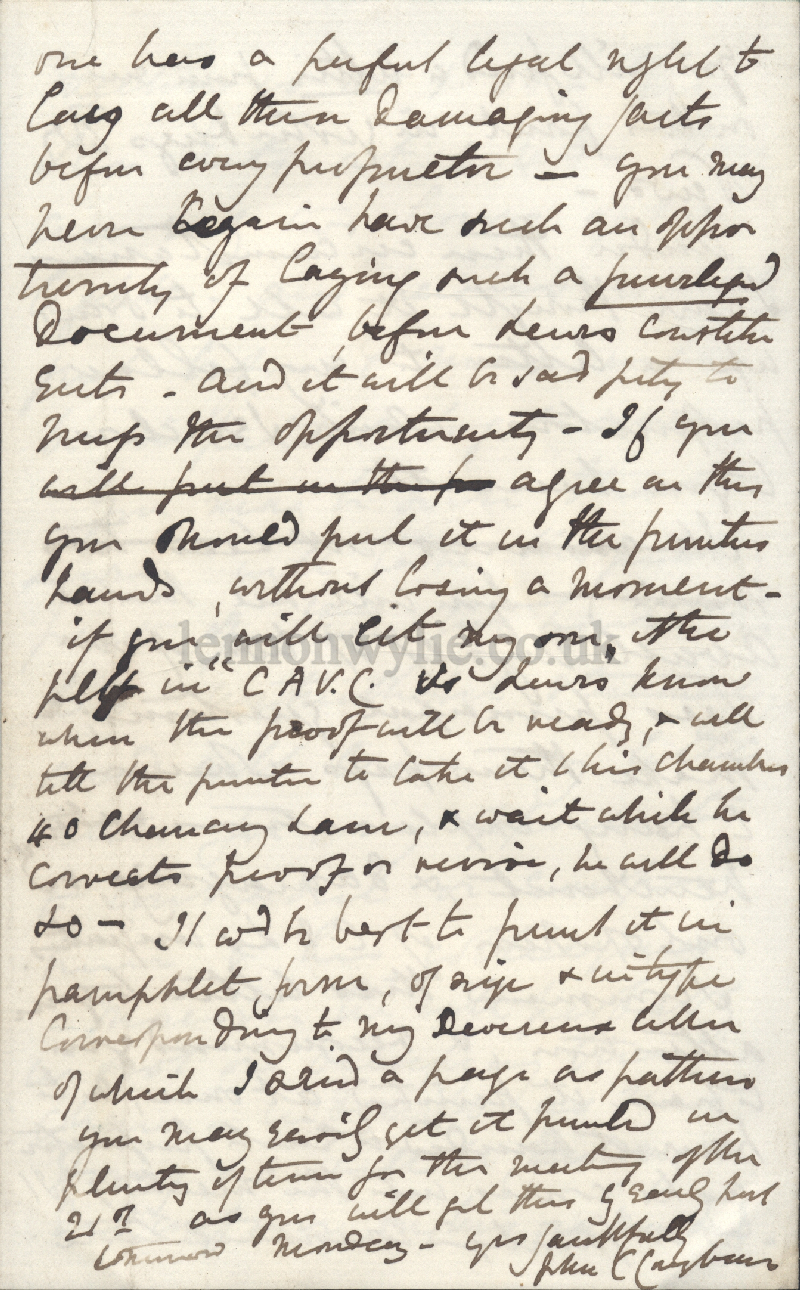 one has a perfect legal right to
lay all these damaging facts
before every proprietor — you may
never again have such an oppor
tunity of laying such a privileged
Document, before Lewis constitu
ents - and it will be sad pity to
miss the opportunity - If you
will put in the agree in this
you should put it in the printers
hands, without losing a moment -
if you will let my son, "the
plff in" C A V. C. vs Lewis know
when the proof will be ready, & will
tell the printer to take it to his chambers
40 Chancery Lane, & wait while he
corrects proof or revise, he will do
so — It wd be best to print it in
pamphlet form, of size & in type
corresponding to my Devereux letter
of which I send a page as pattern
you may easily get it printed in
plenty of time for the meeting of the
21st as you will get this by early post
tomorrow Monday - yrs faithfully
John C
lennonwylie.co.uk